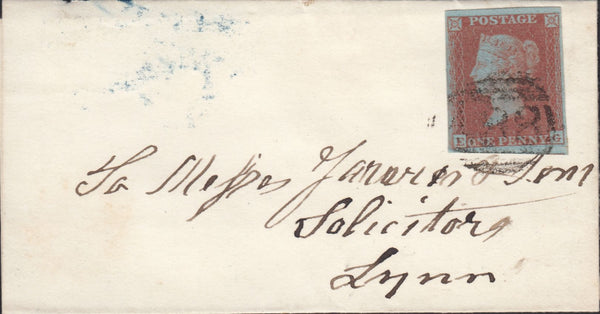 POSTAGE
ONE PENNY
To Messrs & Son
Solicitors
Lynn